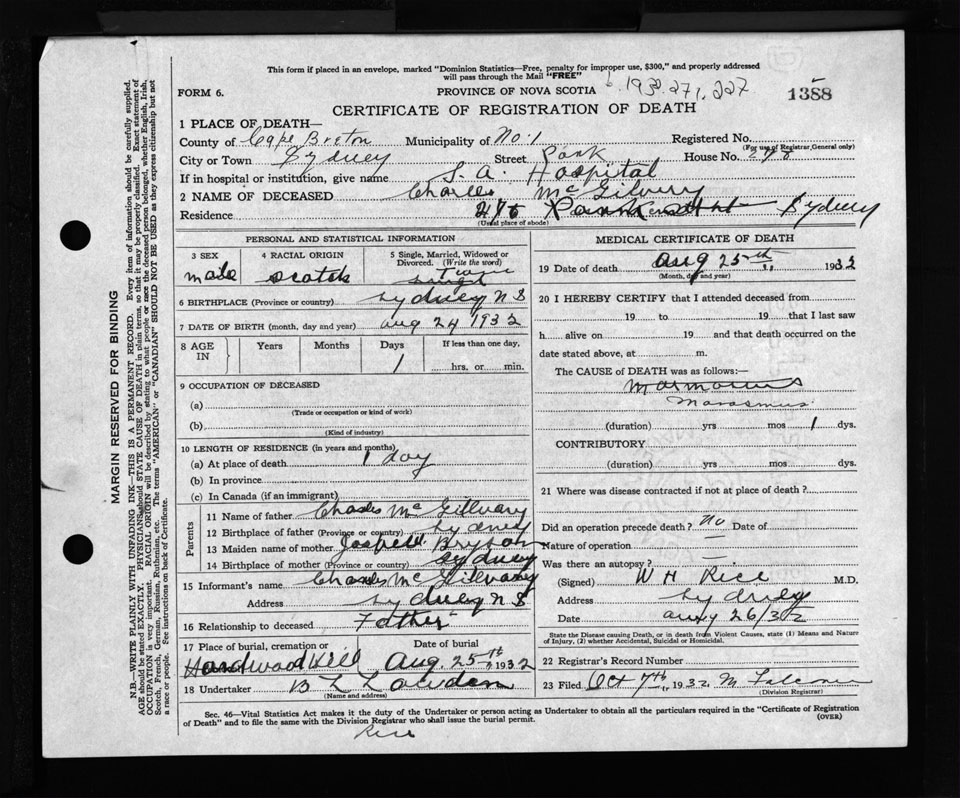 This form if placed in an envelope, marked "Dominion Statistics—Free, penalty for improper use, $300," and properly addressed
will pass through the Mail "FREE"
FORM 6.
PROVINCE OF NOVA SCOTIA
1932, 271, 227
1388
CERTIFICATE OF REGISTRATION OF DEATH
1 PLACE OF DEATH—
County of Cape Breton Municipality of No: 1 Registered No.
(For use of Registrar General only)
City or Town Sydney Street Park House No. 278
If in hospital or institution, give name S. A. Hospital
2 NAME OF DECEASED Charles McGilvery
Residence 278 Park Sydney
(Usual place of abode)
PERSONAL AND STATISTICAL INFORMATION
3 SEX
male
4 RACIAL ORIGIN
Scotch
5 Single, Married, Widowed or
Divorced. (Write the word)
single
6 BIRTHPLACE (Province or country) Sydney N S
7 DATE OF BIRTH (month, day and year) Aug 24 1932
8 AGE IN Years Months Days If less than one day,
1 hrs. or min.
9 OCCUPATION OF DECEASED
(a)
(Trade or occupation or kind of work)
(b)
(Kind of industry)
10 LENGTH OF RESIDENCE (in years and months)
(a) At place of death 1 day
(b) In province
(c) In Canada (if an immigrant)
Parents
11 Name of father Charles McGillvary
12 Birthplace of father (Province or country) Sydney
13 Maiden name of mother Bryson
14 Birthplace of mother (Province or country) Sydney
15 Informant's name Charles McGillvary
Address Sydney N S
16 Relationship to deceased Father
17 Place of burial, cremation Date of burial
Hardwood Hill Aug. 25th 1932
18 Undertaker
(Name and address)
MEDICAL CERTIFICATE OF DEATH
19 Date of death Aug 25th 1932
(Month, day and year)
20 I HEREBY CERTIFY that I attended deceased from
19 to 19 that I last saw
h alive on 19 and that death occurred on the
date stated above, at m.
The CAUSE of DEATH was as follows:—
Marasmus
(duration) yrs mos 1 dys.
CONTRIBUTORY
(duration) yrs mos dys.
21 Where was disease contracted if not at place of death?
Did an operation precede death? no Date of
Nature of operation —
Was there an autopsy? —
(Signed) W H Rice M.D.
Address Sydney
Date Aug 26/32
State the Disease causing Death, or in death from Violent Causes, state (1) Means and Nature
of Injury, (2) whether Accidental, Suicidal or Homicidal.
22 Registrar's Record Number
23 Filed Oct 7th 1932 M
(Division Registrar)
Sec. 46—Vital Statistics Act makes it the duty of the Undertaker or person acting as Undertaker to obtain all the particulars required in the "Certificate of Registration
of Death" and to file the same with the Division Registrar who shall issue the burial permit.
(OVER)
Rice
MARGIN RESERVED FOR BINDING
N.B.—WRITE PLAINLY WITH UNFADING INK—THIS IS A PERMANENT RECORD. Every item of information should be carefully supplied.
AGE should be stated EXACTLY. PHYSICIANS should STATE CAUSE OF DEATH in plain terms, so that it may be properly classified. Exact statement of
OCCUPATION is very important. RACIAL ORIGIN will be described by stating to what people or race the deceased person belonged, whether English, Irish,
Scotch, French, German, Russian, Ruthenian, etc. The terms "AMERICAN" or "CANADIAN" SHOULD NOT BE USED as they express citizenship but not
a race or people. See instructions on back of Certificate.